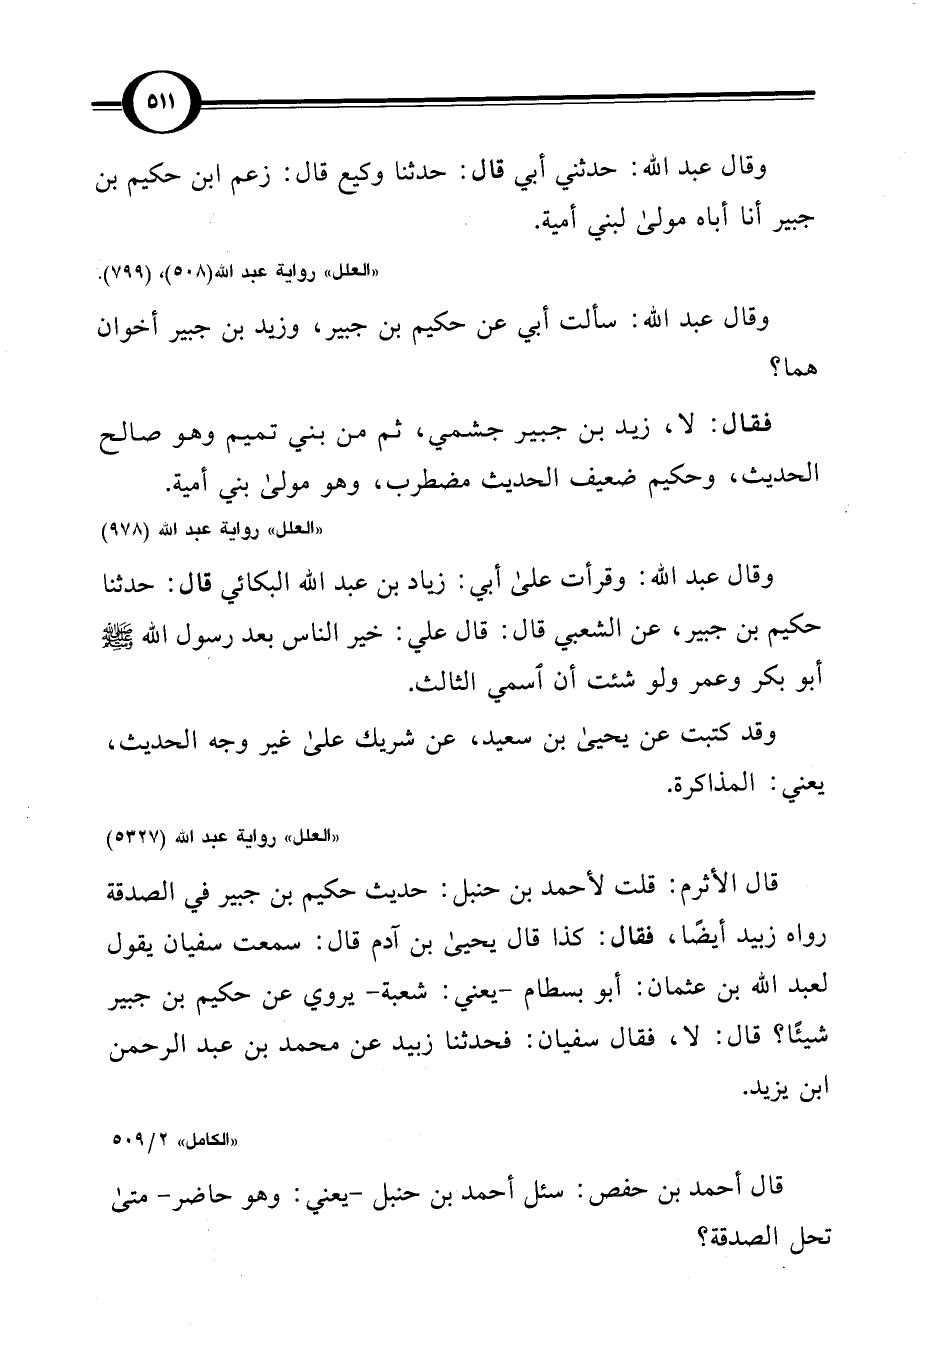 ٥١١
وقال عبد الله: حدثني أبي قال: حدثنا وكيع قال: زعم ابن حكيم بن
جبير أنا أباه مولىٰ لبني أمية.
«العلل» رواية عبد الله(٥٠٨)، (٧٩٩).
وقال عبد الله: سألت أبي عن حكيم بن جبير، وزيد بن جبير أخوان
هما؟
فقال: لا، زيد بن جبير جشمي، ثم من بني تميم وهو صالح
الحديث، وحكيم ضعيف الحديث مضطرب، وهو مولىٰ بني أمية.
«العلل» رواية عبد الله (٩٧٨)
وقال عبد الله: وقرأت علىٰ أبي: زياد بن عبد الله البكائي قال: حدثنا
حكيم بن جبير، عن الشعبي قال: قال علي: خير الناس بعد رسول الله ﷺ
أبو بكر وعمر ولو شئت أن ٱسمي الثالث.
وقد كتبت عن يحيىٰ بن سعيد، عن شريك علىٰ غير وجه الحديث،
يعني: المذاكرة.
«العلل» رواية عبد الله (٥٣٢٧)
قال الأثرم: قلت لأحمد بن حنبل: حديث حكيم بن جبير في الصدقة
رواه زبيد أيضًا، فقال: كذا قال يحيىٰ بن آدم قال: سمعت سفيان يقول
لعبد الله بن عثمان: أبو بسطام -يعني: شعبة- يروي عن حكيم بن جبير
شيئًا؟ قال: لا، فقال سفيان: فحدثنا زبيد عن محمد بن عبد الرحمن
ابن يزيد.
«الكامل» ٢/ ٥٠٩
قال أحمد بن حفص: سئل أحمد بن حنبل -يعني: وهو حاضر- متىٰ
تحل الصدقة؟